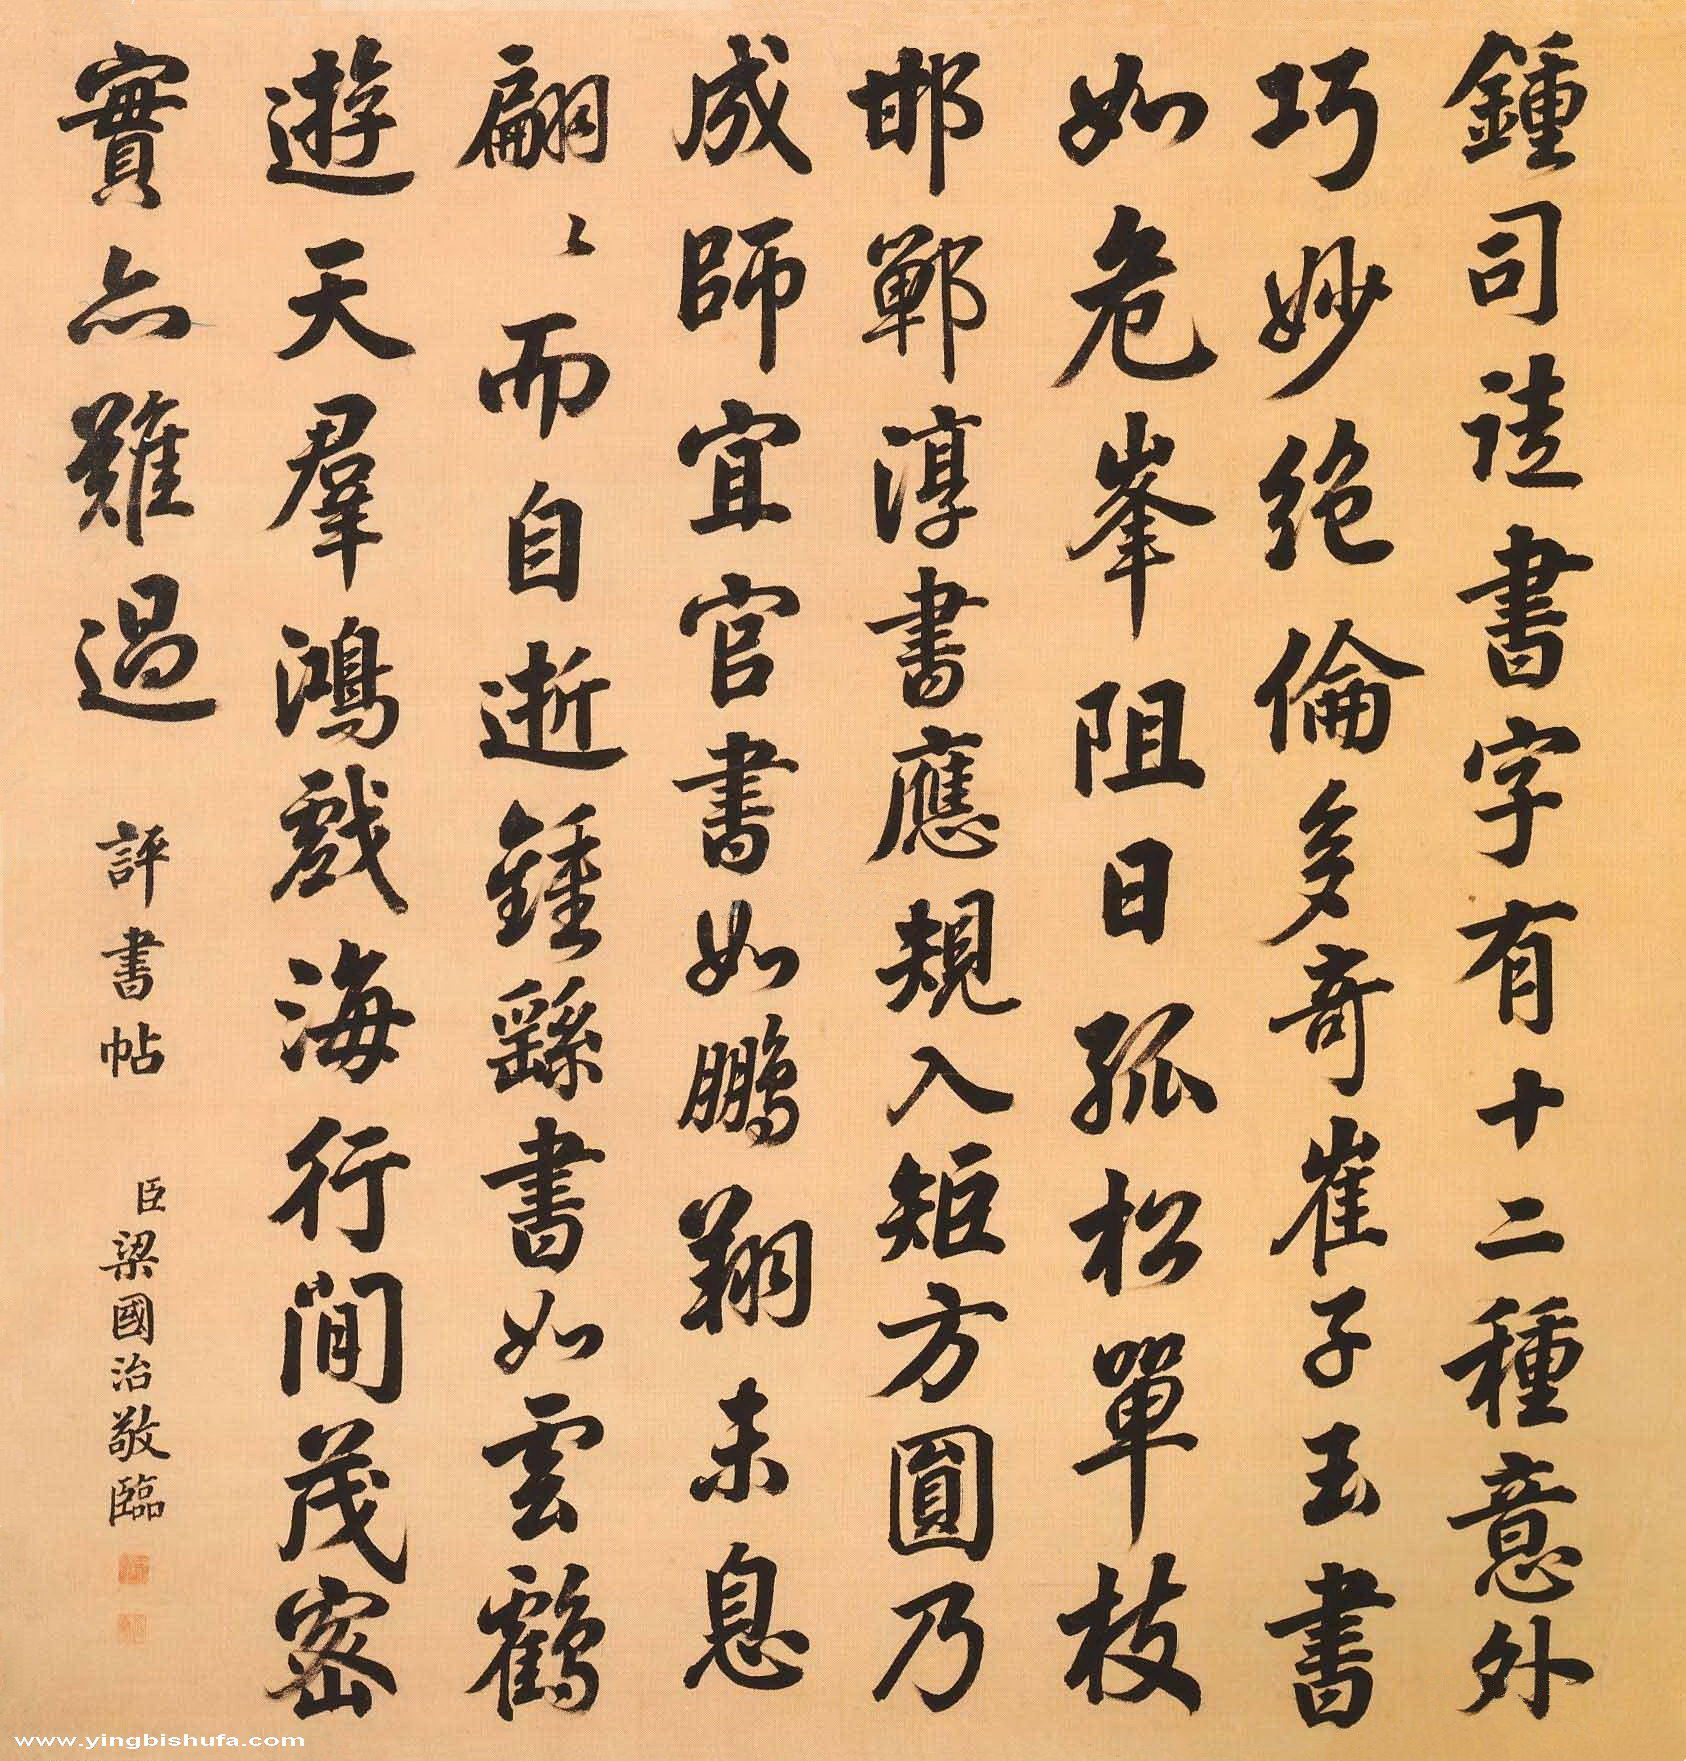 鍾司徒書字有十二種意外
巧妙絶倫多奇崔子玉書
如危峯阻日孤松單枝
邯鄲淳書應規入矩方圓乃
成師宜官書如鵬翔未息
翩〻而自逝鍾繇書如雲鶴
遊天羣鴻戲海行間茂密
實亦難過
評書帖
臣梁國治敬臨
www.yingbishufa.com